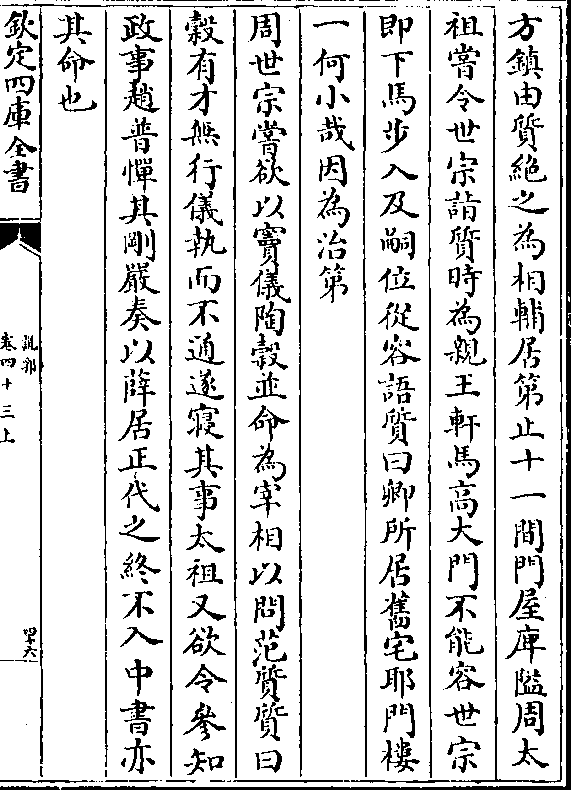 方鎮由質絶之為相輔居第止十一間門屋庳隘周太
祖嘗令世宗詣質時為親王軒馬高大門不能容世宗
即下馬步入及嗣位從容語質曰卿所居舊宅耶門樓
一何小哉因為治第
周世宗嘗欲以竇儀陶穀並命為宰相以問范質質曰
穀有才無行儀執而不通遂寢其事太祖又欲令參知
政事趙普憚其剛嚴奏以薛居正代之終不入中書亦
其命也
欽定四庫全書
說郛
卷四十三上
四十六